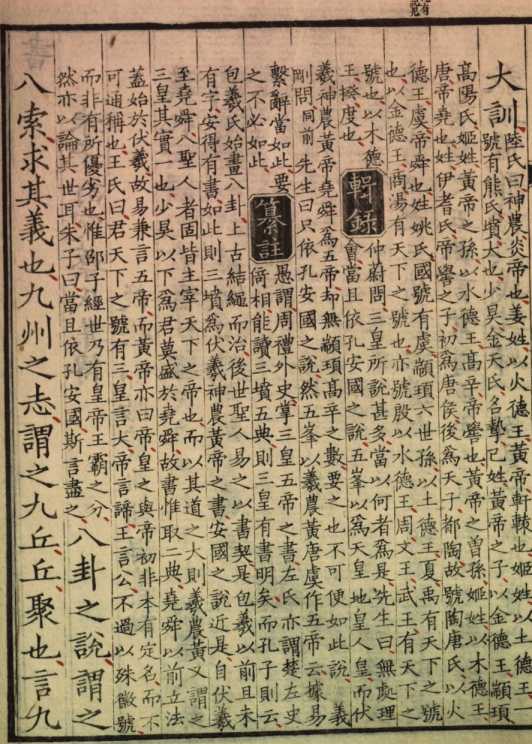 大訓
陸氏曰神農炎帝也姜姓以火德王黃帝軒轅也姬姓以土德王
號有熊氏墳大也少昊金天氏名摯己姓黃帝之子以金德王顓頊
高陽氏姬姓黃帝之孫以水德王高辛帝嚳也黃帝之曾孫姬姓以木德王
唐帝堯也姓伊耆氏帝嚳之子初為唐侯後為天子都陶故號陶唐氏以火
德王虞帝舜也姓姚氏國號有虞顓頊六世孫以土德王夏禹有天下之號
也以金德王商湯有天下之號也亦號殷以水德王周文王武王有天下之
號也以木德
王揆度也
輯錄
仲蔚問三皇所說甚多當以何者為是先生曰無處理
會當且依孔安國之說五峯以為天皇地皇人皇而伏
羲神農黃帝堯舜為五帝却無顓頊高辛之數要之也不可便如此說 義
剛問同前 先生曰只依孔安國之說然五峯以羲農黃唐虞作五帝云據易
繫辭當如此要
之不必如此
纂註
愚謂周禮外史掌三皇五帝之書左氏亦謂楚左史
倚相能讀三墳五典則三皇有書明矣而孔子則云
包羲氏始畫八卦上古結繩而治後世聖人易之以書契是包羲以前且未
有字安得有書如此則三墳為伏羲神農黃帝之書安國之說近是自伏羲
至堯舜八聖人者固皆主宰天下之帝也而以其道之大則羲農黃又謂之
三皇其實一也少昊以下為君莫盛於堯舜故書惟取二典堯舜以前立法
蓋始於伏羲故易兼言五帝而黃帝亦曰帝皇之與帝初非本有定名而不
可通稱也王氏曰君天下之號有三皇言大帝言諦王言公不過以殊徽號
而非有所優劣也惟邵子經世乃有皇帝王霸之分
然亦以論其世耳朱子曰當且依孔安國斯言盡之
八卦之說謂之
八索求其義也九州之志謂之九丘丘聚也言九